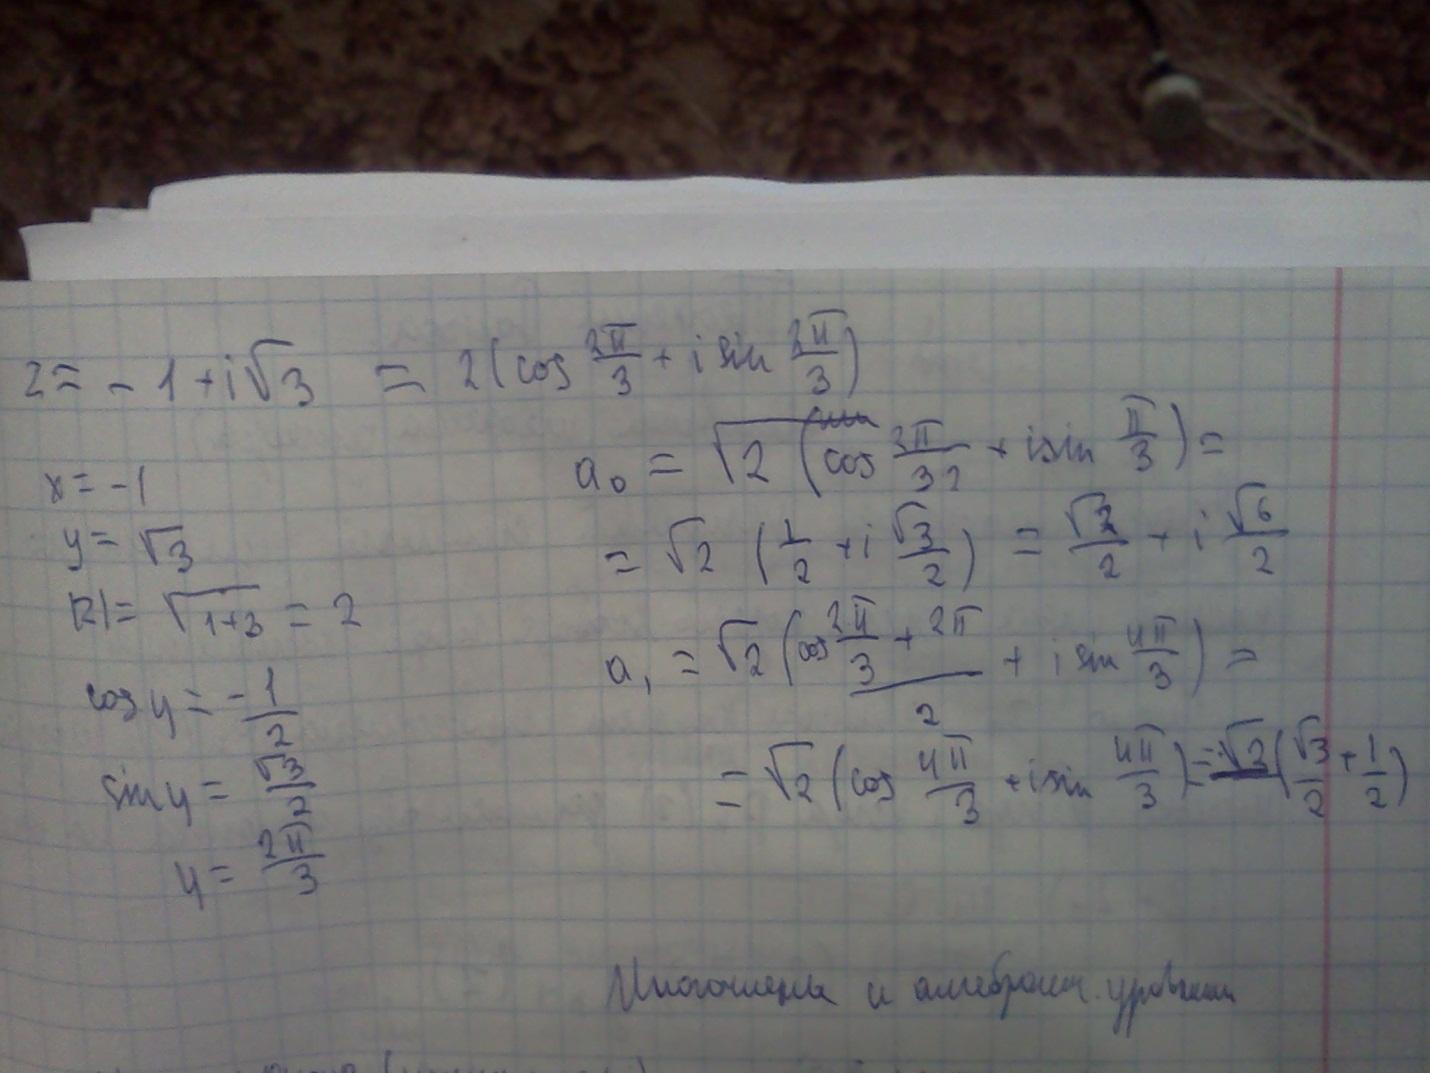 z = -1 + i√3 = 2(cos 2π/3 + i sin 2π/3)
x = -1
y = √3
|z| = √(1+3) = 2
cos y = -1/2
sin y = √3/2
y = 2π/3
a₀ = √2 (cos 2π/3·2 + i sin π/3) =
= √2 (1/2 + i √3/2) = √2/2 + i √6/2
a₁ = √2 (cos (2π/3 + 2π)/2 + i sin 4π/3) =
= √2 (cos 4π/3 + i sin 4π/3) = -√2 (√3/2 + 1/2)
Многочлены и алгебраич. уравнения